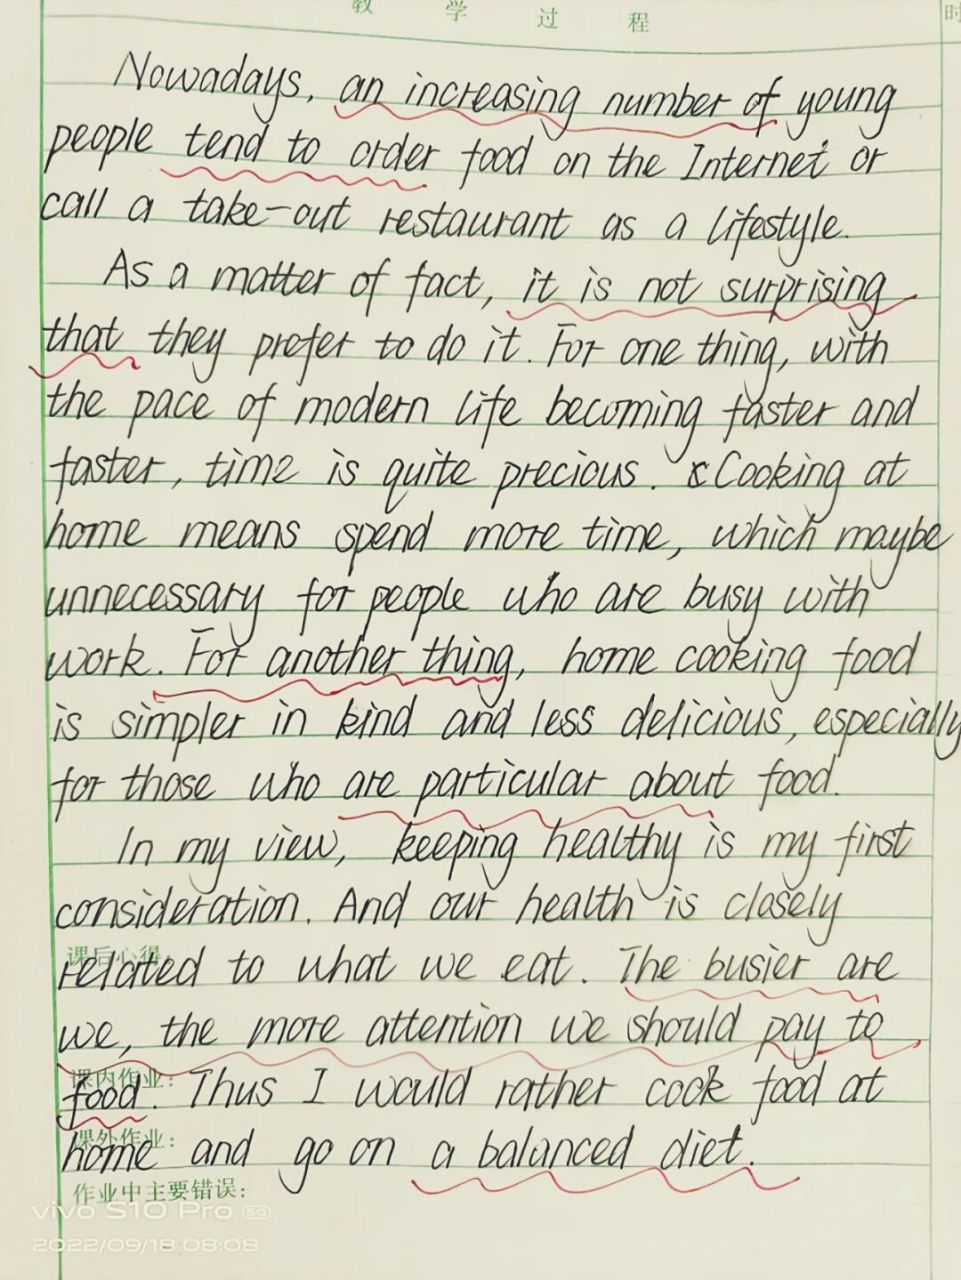 教 学 过 程 时
Nowadays, an increasing number of young
people tend to order food on the Internet or
call a take-out restaurant as a lifestyle.
As a matter of fact, it is not surprising
that they prefer to do it. For one thing, with
the pace of modern life becoming faster and
faster, time is quite precious. Cooking at
home means spend more time, which maybe
unnecessary for people who are busy with
work. For another thing, home cooking food
is simpler in kind and less delicious, especially
for those who are particular about food.
In my view, keeping healthy is my first
consideration. And our health is closely
课后心得:
related to what we eat. The busier are
we, the more attention we should pay to
课内作业:
food. Thus I would rather cook food at
课外作业:
home and go on a balanced diet.
作业中主要错误:
vivo S10 Pro 5G
2022/09/18 08:08